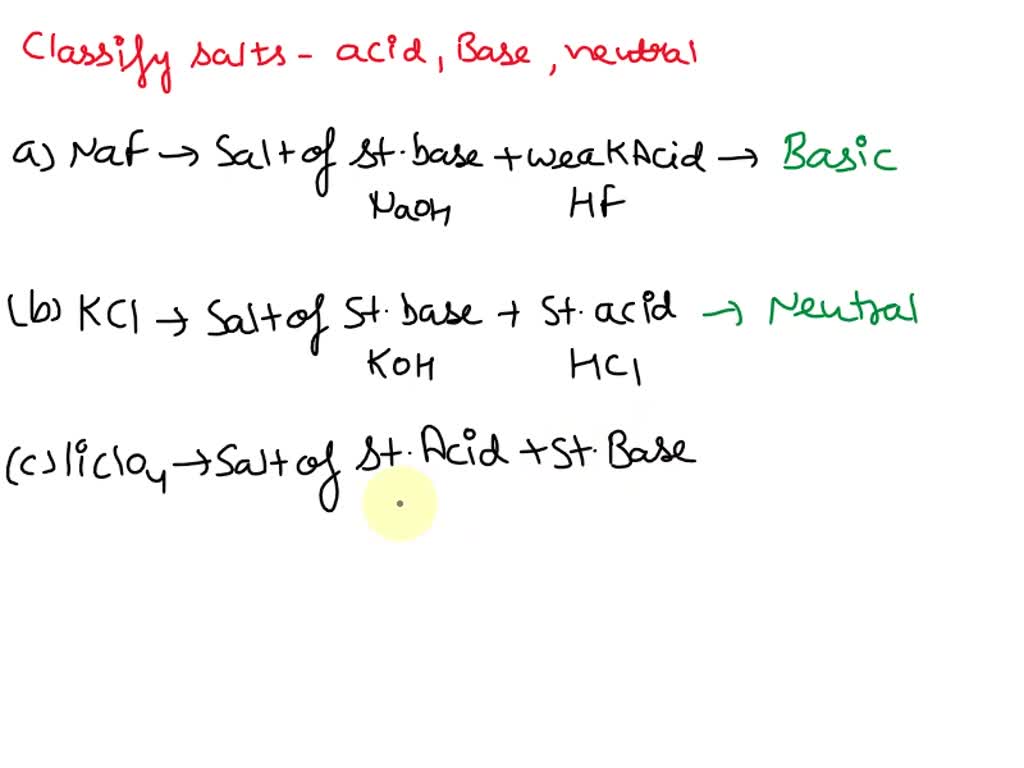 Classify salts - acid, Base, neutral
a) NaF → Salt of st. base + weak Acid → Basic
NaOH HF
(b) KCl → Salt of St. base + St. acid → Neutral
KOH HCl
(c) liclO4 → Salt of st. Acid + St. Base